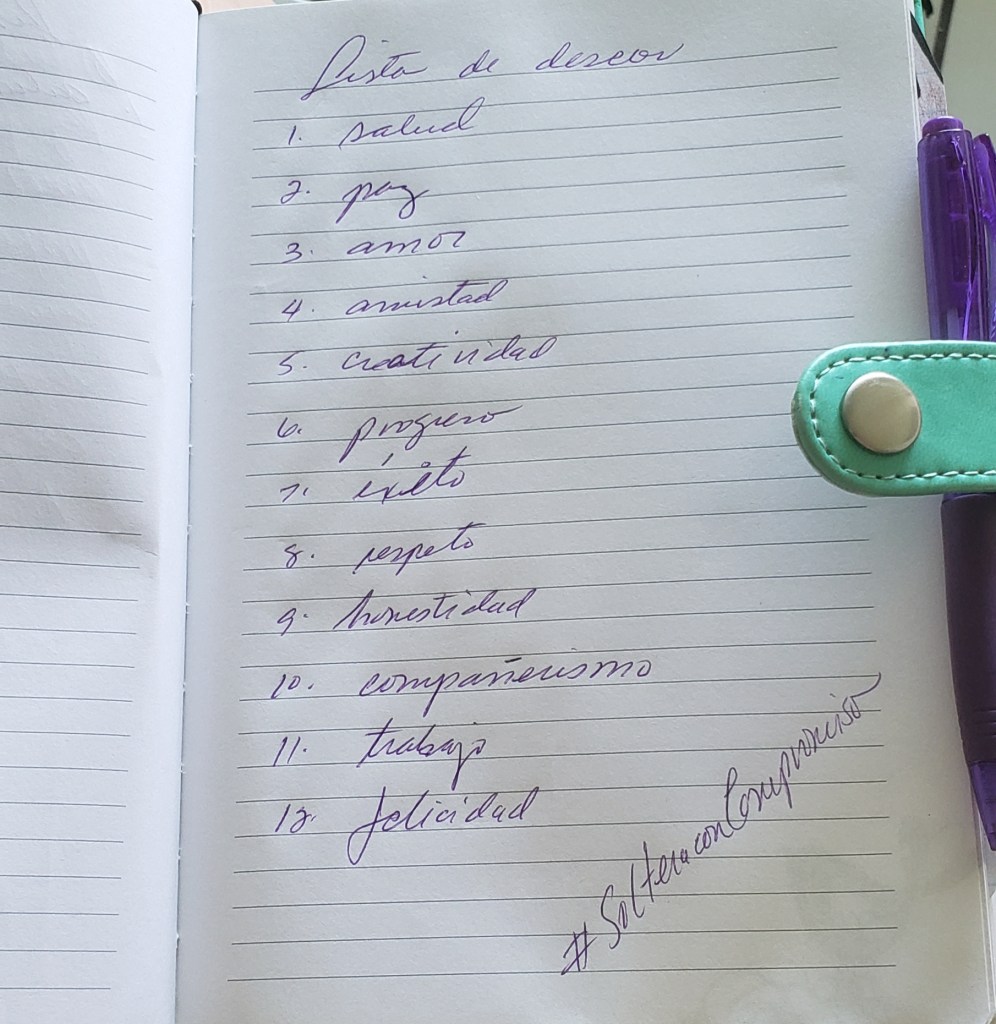 Lista de deseos
1. salud
2. paz
3. amor
4. amistad
5. creatividad
6. progreso
7. éxito
8. respeto
9. honestidad
10. compañerismo
11. trabajo
12. felicidad
#SolteraconCompromiso